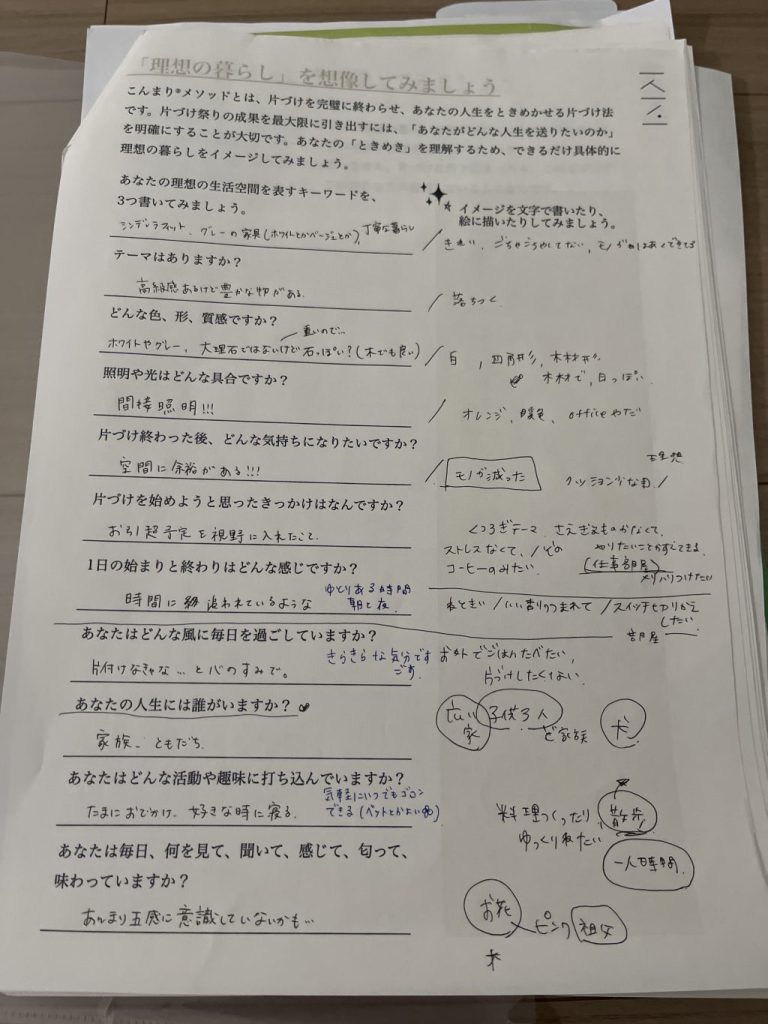 「理想の暮らし」を想像してみましょう
こんまり®メソッドとは、片づけを完璧に終わらせ、あなたの人生をときめかせる片づけ法
です。片づけ祭りの成果を最大限に引き出すには、「あなたがどんな人生を送りたいのか」
を明確にすることが大切です。あなたの「ときめき」を理解するため、できるだけ具体的に
理想の暮らしをイメージしてみましょう。
あなたの理想の生活空間を表すキーワードを、
3つ書いてみましょう。
イメージを文字で書いたり、
絵に描いたりしてみましょう。
グレーの家具(ホワイトとかベージュとか)、丁寧な暮らし
きれい、ごちゃごちゃしてない、モノがはあくできてる
テーマはありますか？
高級感あるけど豊かな物がある。
落ちつく
どんな色、形、質感ですか？
重いので…
ホワイトやグレー、大理石ではないけど石っぽい？(木でも良い)
白、四角形、木材
木材で、白っぽい。
照明や光はどんな具合ですか？
間接照明!!!
オレンジ、暖色、officeやだ
片づけ終わった後、どんな気持ちになりたいですか？
空間に余裕がある!!!
モノが減った
理想
クッション少な目
片づけを始めようと思ったきっかけはなんですか？
お引越予定を視野に入れたこと
くつろぎテーマ、さえぎるものがなくて、
ストレスなくて、
やりたいことがすぐできる。
コーヒーのみたい
(仕事部屋)
メリハリつけたい
1日の始まりと終わりはどんな感じですか？
時間に追われているような
ゆとりある時間
朝と夜
スイッチ切りかえ
したい
部屋
あなたはどんな風に毎日を過ごしていますか？
片付けなきゃな…と心のすみで。
きらきらな気分です
ごす
お外でごはんたべたい、
片づけしたくない
あなたの人生には誰がいますか？
家族、ともだち
広い
家
子供3人
ど家族
犬
あなたはどんな活動や趣味に打ち込んでいますか？
たまにおでかけ、好きな時に寝る。
気軽にいつでもゴロン
できる(ベットとかよい)
料理つくったり
散歩
ゆっくりねたい
一人時間
あなたは毎日、何を見て、聞いて、感じて、匂って、
味わっていますか？
あんまり五感に意識していないかも…
お花
ピンク
祖父